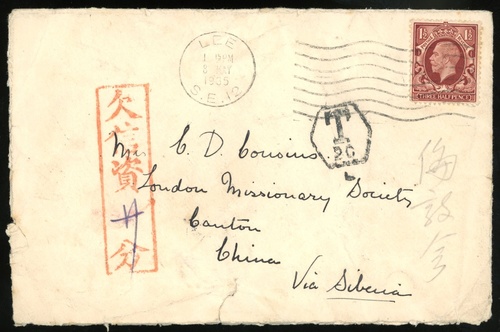 LEE
1935
S.E.12
1½ 1½
THREE HALFPENCE
T
欠資
廿
分
C. D. Cousins
London Missionary Society
Canton
China
Via Siberia
倫敦会